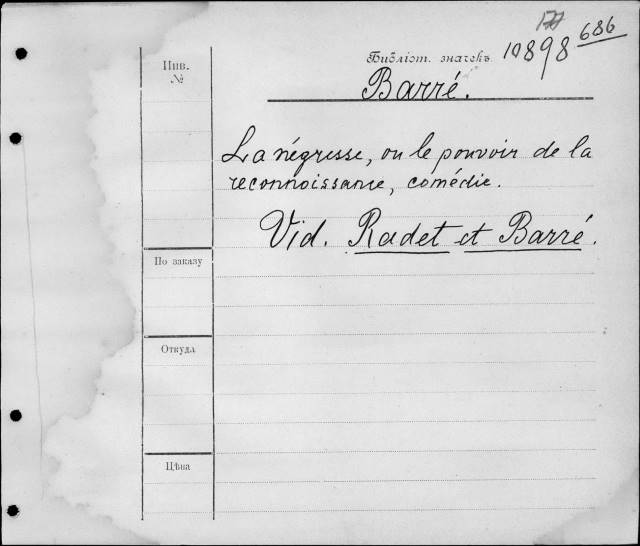 177
10898 686
Инв.
№
Библіот. значекъ
Barré.
La négresse, ou le pouvoir de la
reconnoissance, comédie.
Vid. Radet et Barré.
По заказу
Откуда
Цѣна